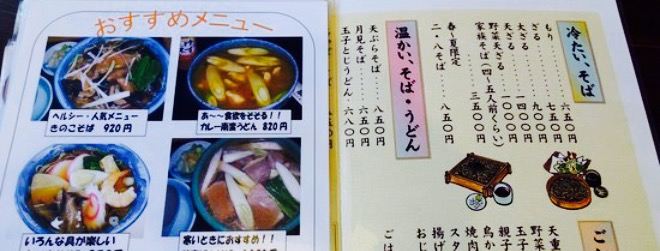 おすすめメニュー
ヘルシー・人気メニュー
きのこそば 920円
あ〜〜食欲をそそる!!
カレー南蛮うどん 820円
いろんな具が楽しい
寒いときにおすすめ!!
冷たい、そば
もり・・・・六五〇円
ざる・・・・七五〇円
大ざる・・・九〇〇円
天ざる・・・一〇〇〇円
野菜天ざる・・一〇〇〇円
家族そば(四〜五人前くらい)
三五〇〇円
春〜夏限定
二・八そば・・・八五〇円
温かい、そば・うどん
天ぷらそば・・・・八五〇円
月見そば・・・・・六五〇円
玉子とじうどん・・六八〇円
ご
天重
野菜
玉子
親子
鳥か
焼肉
スタ
揚げ
おじ
ごは